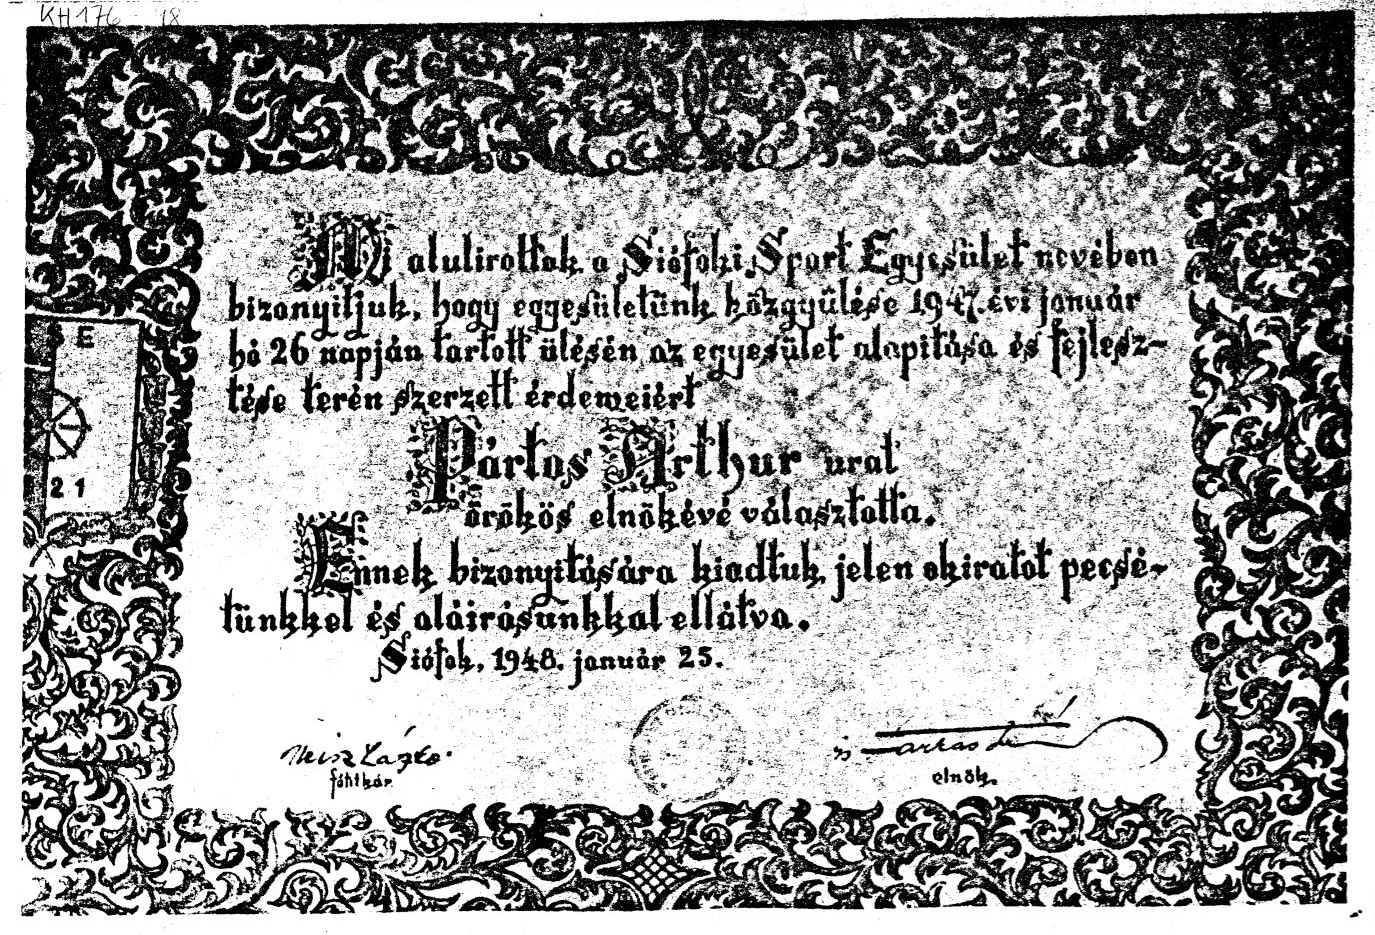 KH 176 18
Mi alulirottak a Siófoki Sport Egyesület nevében
bizonyitjuk, hogy egyesületünk közgyülése 1947. évi január
hó 26 napján tartott ülésén az egyesület alapitása és fejlesz-
tése terén szerzett érdemeiért
Pártos Arthur urat
örökös elnökévé választotta.
Ennek bizonyitására kiadtuk jelen okiratot pecsé-
tünkkel és aláirásunkkal ellátva.
Siófok, 1948. január 25.
Meisz László
főhtkár.
elnök.
E
21